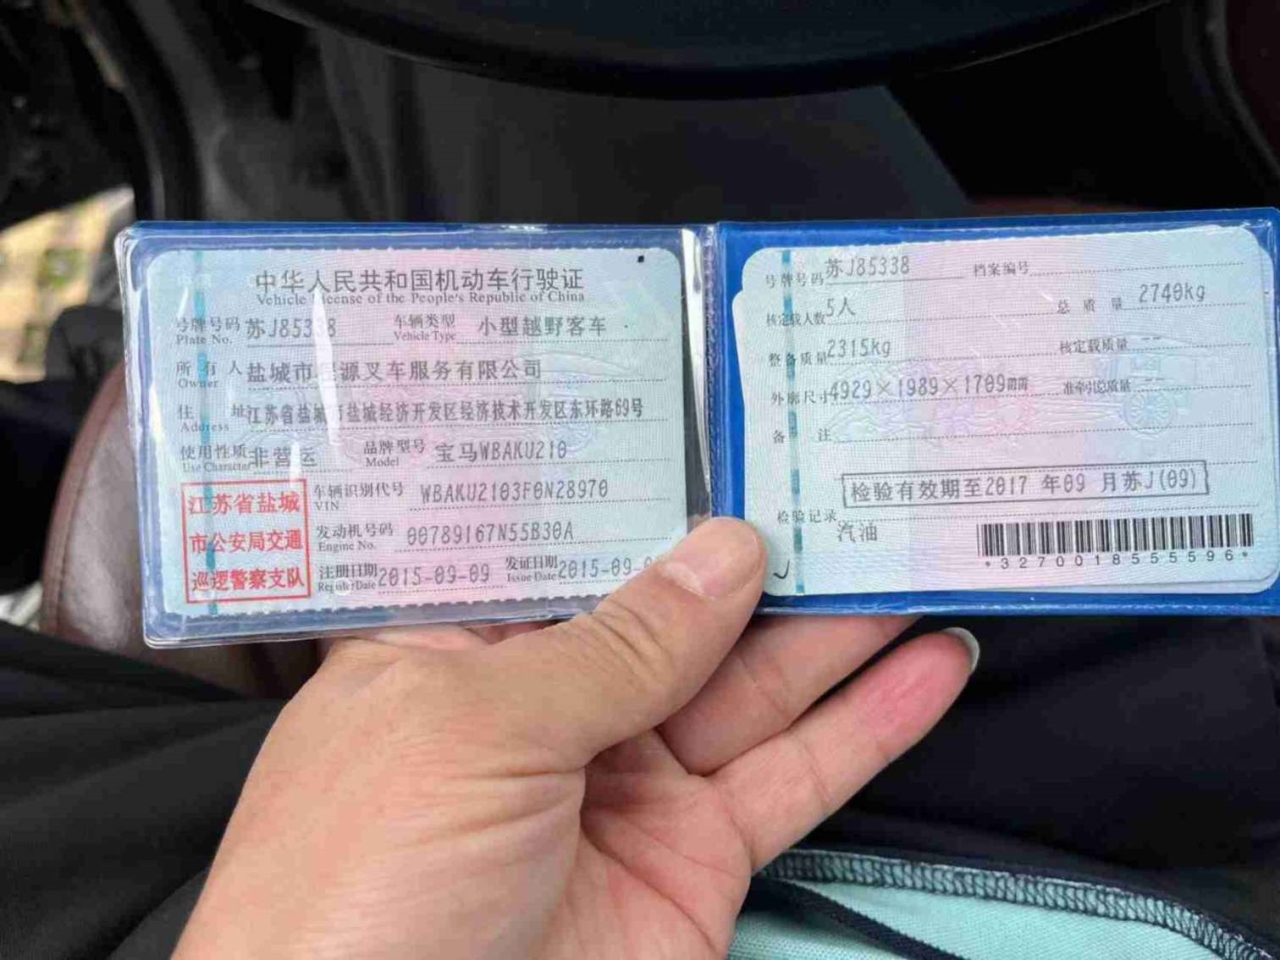 中华人民共和国机动车行驶证
Vehicle License of the People's Republic of China
号牌号码 Plate No. 苏J85338 车辆类型 Vehicle Type 小型越野客车
所有人 Owner 盐城市 源叉车服务有限公司
住址 Address 江苏省盐城 盐城经济开发区经济技术开发区东环路69号
使用性质 Use Character 非营运 品牌型号 Model 宝马WBAKU210
江苏省盐城
市公安局交通
巡逻警察支队
车辆识别代号 VIN WBAKU2103F0N28970
发动机号码 Engine No. 00789167N55B30A
注册日期 Register Date 2015-09-09 发证日期 Issue Date 2015-09-
号牌号码 苏J85338 档案编号
核定载人数 5人 总质量 2740kg
整备质量 2315kg 核定载质量 --
外廓尺寸 4929×1989×1709mm 准牵引总质量 --
备注
检验有效期至2017 年09 月苏J(09)
检验记录
汽油
*3270018555596*